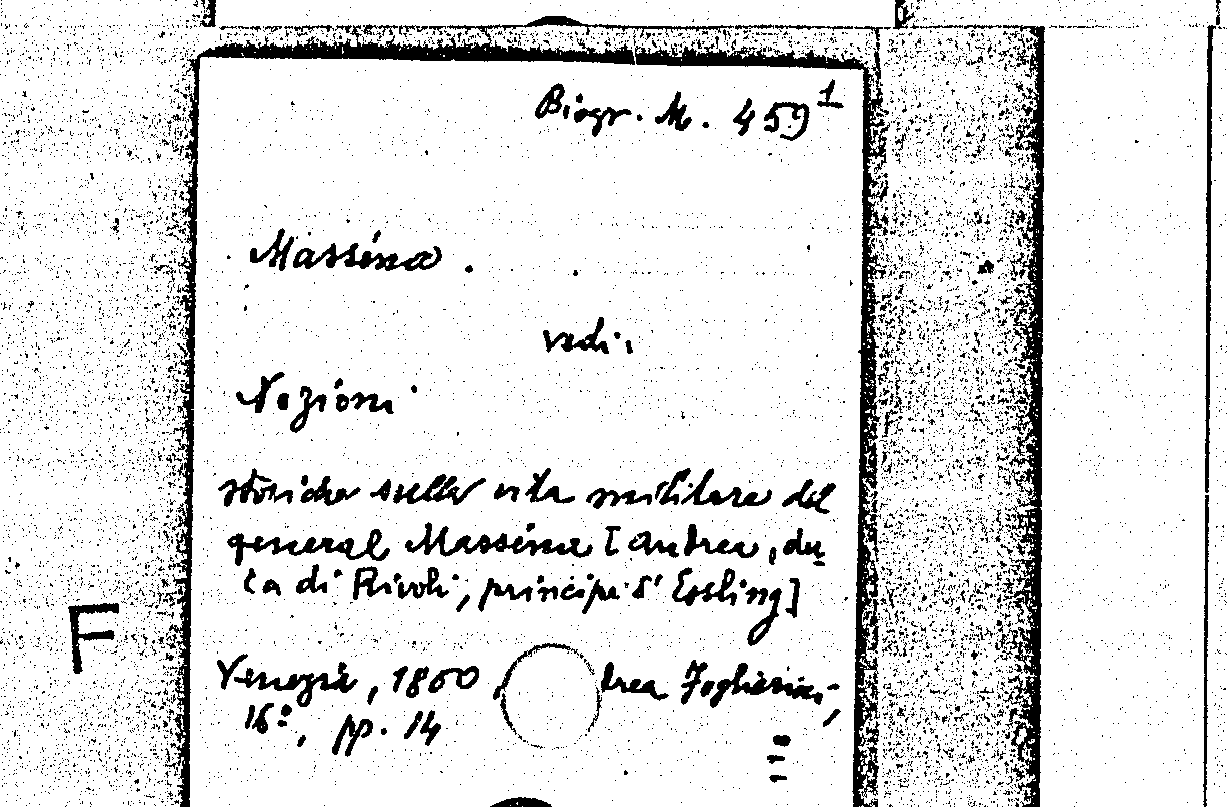 Biogr. M. 459¹
Masséna.
vedi:
Nozioni
storiche sulla vita militare del
general Masséna [Andrea, du
ca di Rivoli, principe d'Essling]
Venezia, 1860, drea Foghierini,
16º, pp. 14
F